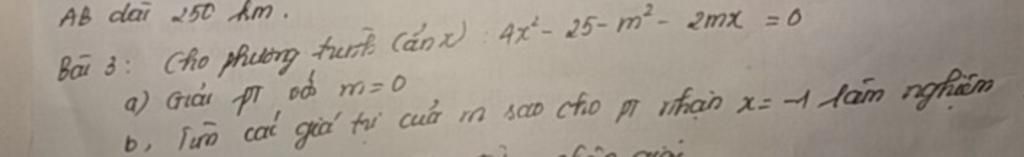 AB dài 250 km.
Bài 3: Cho phương trình (ẩn x): 4x² - 25 - m² - 2mx = 0
a) Giải PT với m = 0
b, Tìm các giá trị của m sao cho PT nhận x = -1 làm nghiệm